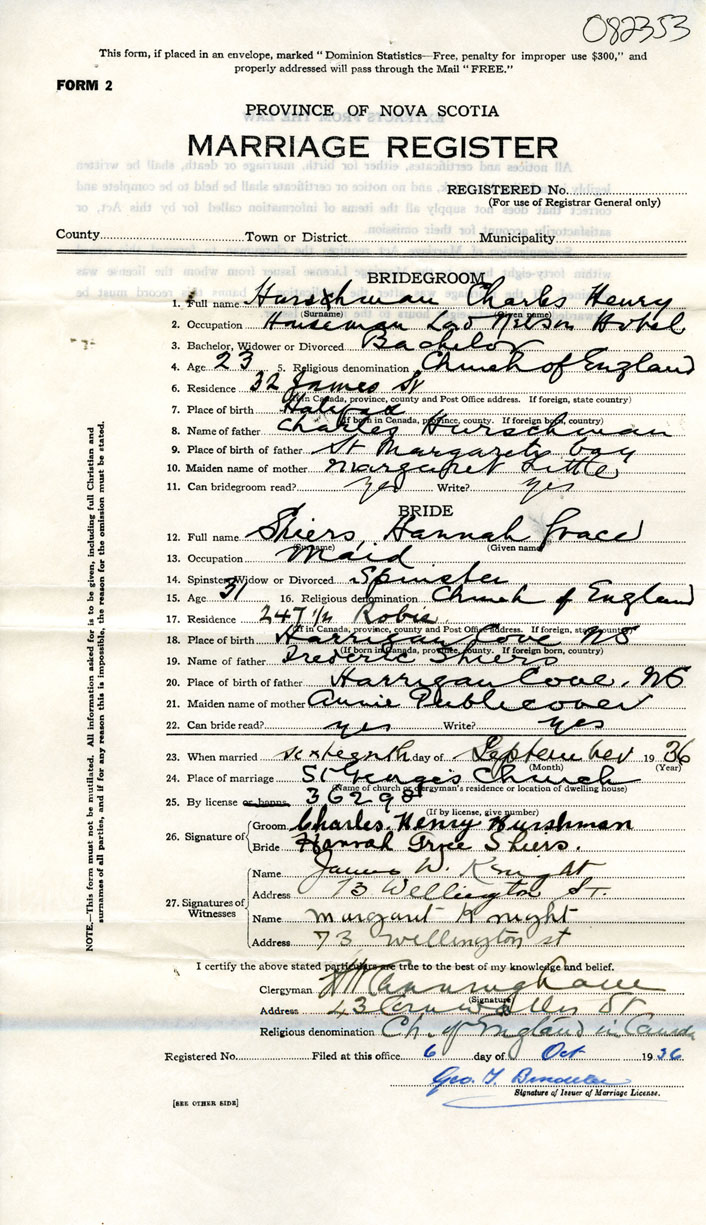 082353
This form, if placed in an envelope, marked "Dominion Statistics—Free, penalty for improper use $300," and
properly addressed will pass through the Mail "FREE."
FORM 2
PROVINCE OF NOVA SCOTIA
MARRIAGE REGISTER
REGISTERED No.
(For use of Registrar General only)
County Town or District Municipality
BRIDEGROOM
1. Full name Hurschman Charles Henry
(Surname) (Given name)
2. Occupation Houseman Lord Nelson Hotel
3. Bachelor, Widower or Divorced Bachelor
4. Age 23 5. Religious denomination Church of England
6. Residence 32 James St
(If in Canada, province, county and Post Office address. If foreign, state country)
7. Place of birth Halifax
(If born in Canada, province, county. If foreign born, country)
8. Name of father Charles Hurschman
9. Place of birth of father St Margarets bay
10. Maiden name of mother Margaret Little
11. Can bridegroom read? yes Write? yes
BRIDE
12. Full name Shiers, Hannah Grace
(Surname) (Given name)
13. Occupation Maid
14. Spinster, Widow or Divorced Spinster
15. Age 31 16. Religious denomination Church of England
17. Residence 247 1/2 Robie
(If in Canada, province, county and Post Office address. If foreign, state country)
18. Place of birth Harrigan Cove NS
(If born in Canada, province, county. If foreign born, country)
19. Name of father Frederic Shiers
20. Place of birth of father Harrigan Cove, NS
21. Maiden name of mother Annie Publicover
22. Can bride read? yes Write? yes
23. When married sixteenth day of September 1936
(Month) (Year)
24. Place of marriage St George's Church
(Name of church or clergyman's residence or location of dwelling house)
25. By license or banns 36298
(If by license, give number)
26. Signature of Groom Charles Henry Hurshman
Bride Hannah Grace Shiers.
27. Signatures of Witnesses Name James W. Knight
Address 73 Wellington St.
Name Margaret Knight
Address 73 Wellington st
I certify the above stated particulars are true to the best of my knowledge and belief.
Clergyman Cunningham
(Signature)
Address 43 Cornwallis St
Religious denomination Ch. of England in Canada
Registered No. Filed at this office 6 day of Oct 1936
Geo. T.
Signature of Issuer of Marriage License.
[SEE OTHER SIDE]
NOTE.—This form must not be mutilated. All information asked for is to be given, including full Christian and
surnames of all parties, and if for any reason this is impossible, the reason for the omission must be stated.